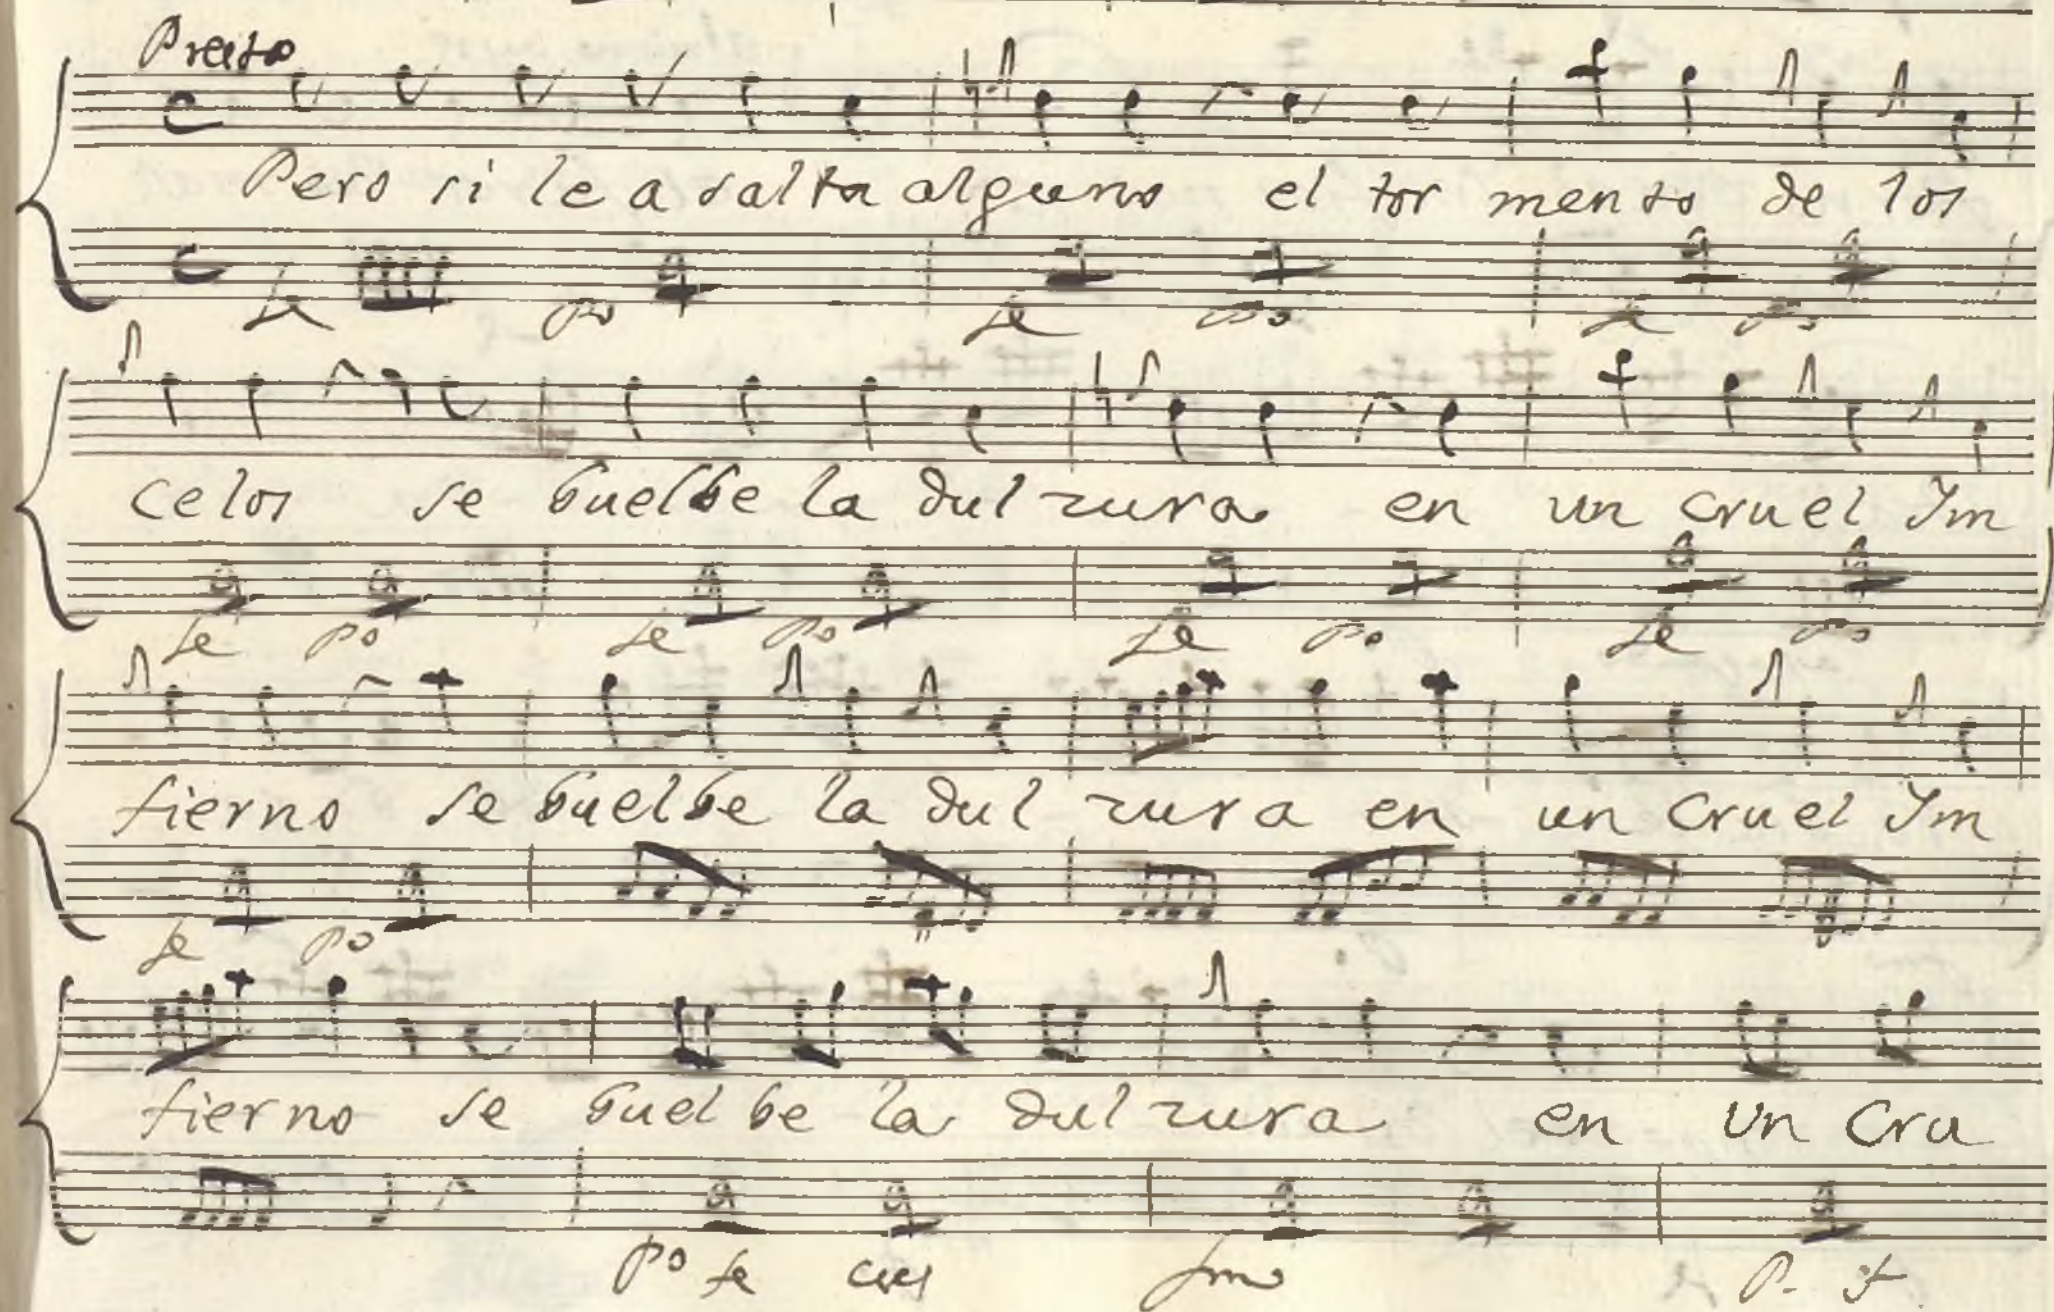 Presto
Pero si le a salta alguno el tor mento de los
fe po fe po fe po
celos se buelbe la dul zura en un cruel Ym
fe po fe po fe po fe po
fierno se buelbe la dul zura en un Cruel Ym
fe po
fierno se buel be la dul zura en un Cru
po fe cres fmo P. f